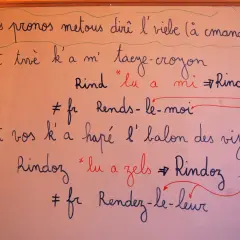 s pronos metous dirî l' viebe (à cmand
t tnè k'a m' tacze-croyon
Rind *lu a mi ⇒ Rind
≠ fr Rends-le-moi
t vos k'a hapé l' balon des vis
Rindoz *lu a zels ⇒ Rindoz
≠ fr Rendez-le-leur